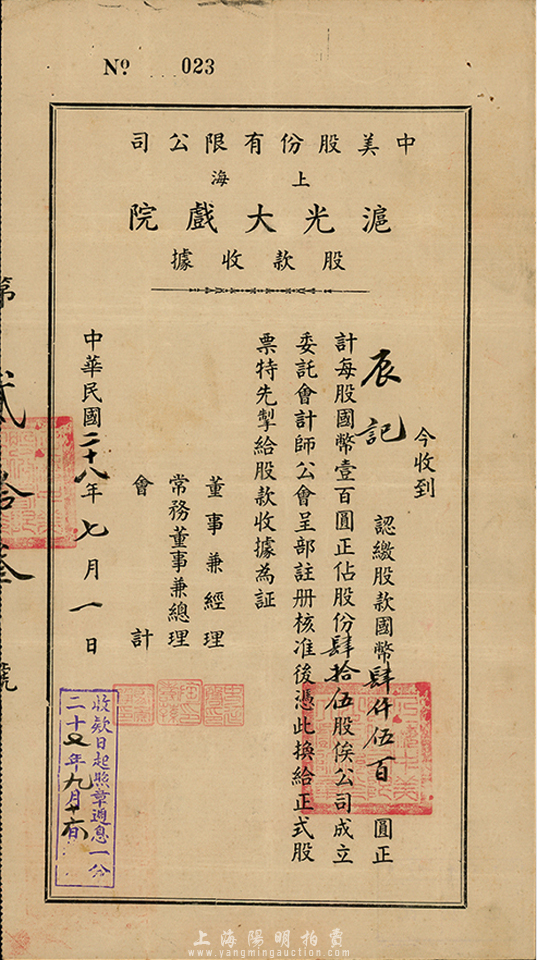 Nº 023
中美股份有限公司
上海
滬光大戲院
股款收據
今收到
辰記 認繳股款國幣肆仟伍百圓正
計每股國幣壹百圓正佔股份肆拾伍股俟公司成立
委託會計師公會呈部註册核准後憑此換給正式股
票特先掣給股款收據為証
董事兼經理
常務董事兼總理
會計
中華民國二十八年七月一日
第貳拾叁號
收款日起照章週息一分
上海陽明拍賣
www.yangmingauction.com